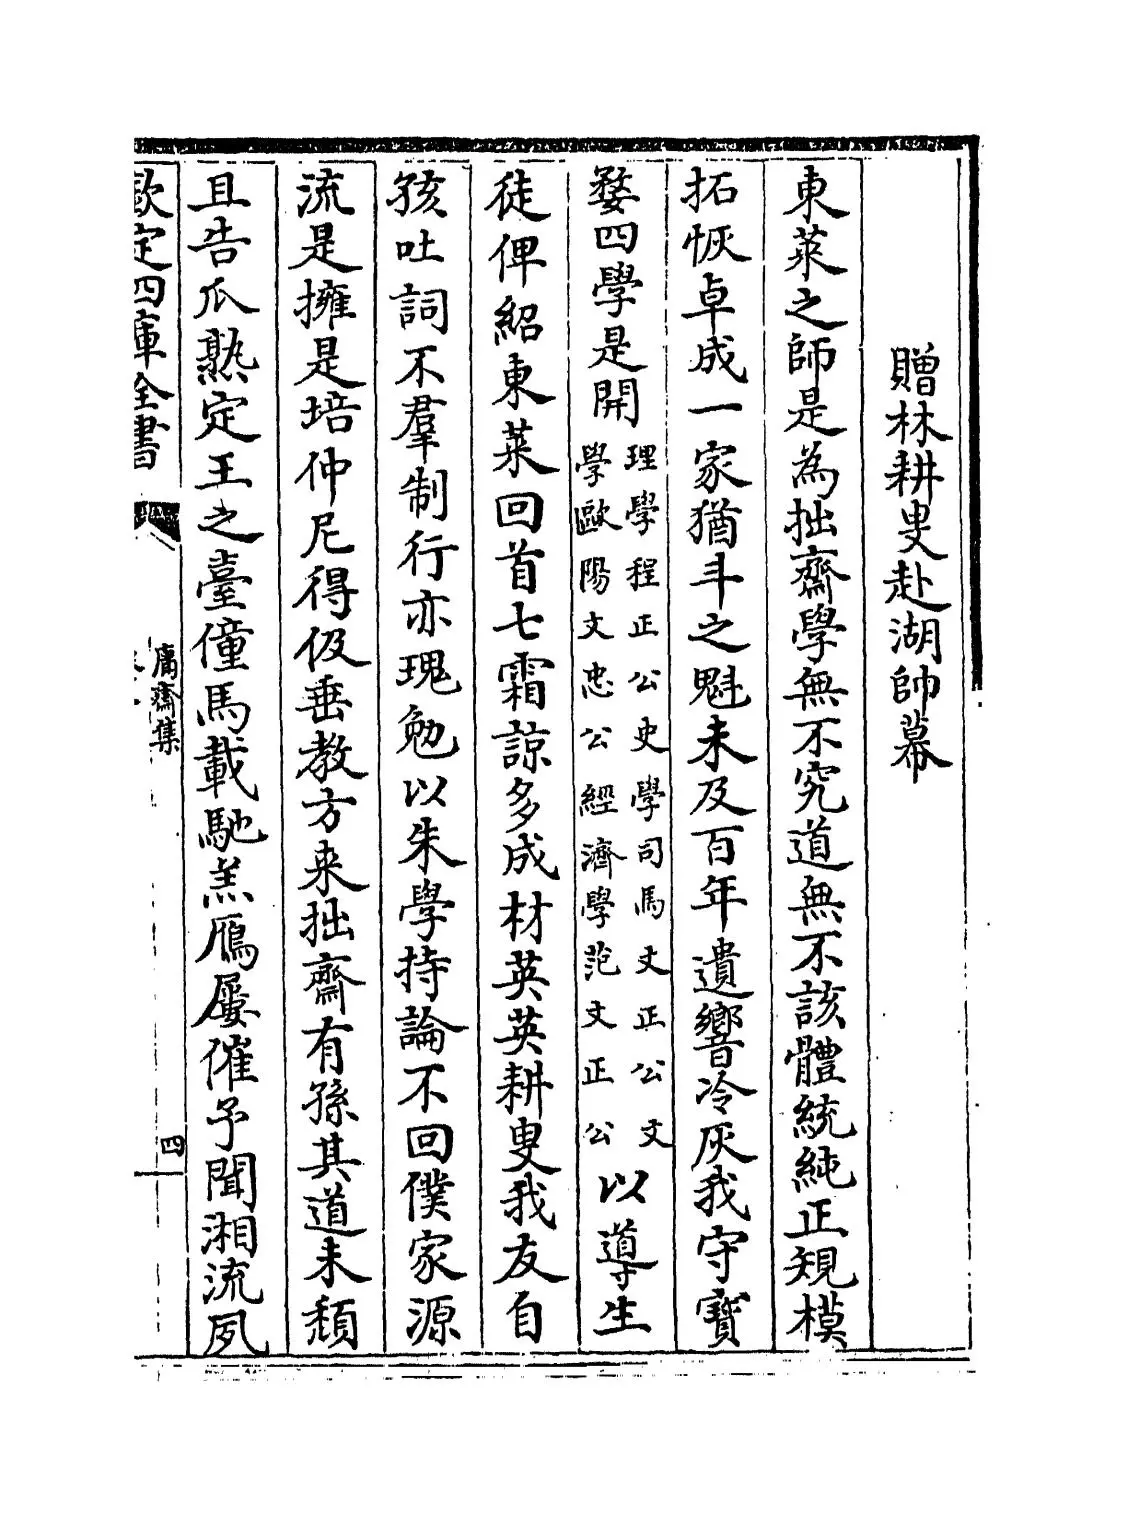 贈林耕叟赴湖帥幕
東萊之師是為拙齋學無不究道無不該體統純正規模
拓恢卓成一家猶斗之魁未及百年遺響冷灰我守寶
婺四學是開
理學程正公史學司馬文正公文
學歐陽文忠公經濟學范文正公
以導生
徒俾紹東萊回首七霜諒多成材英英耕叟我友自
孩吐詞不羣制行亦瑰勉以朱學持論不回僕家源
流是擁是培仲尼得伋垂教方来拙齋有孫其道未頽
且告瓜熟定王之臺僮馬載馳羔鴈屢催予聞湘流夙
欽定四庫全書
鬳齋集
四